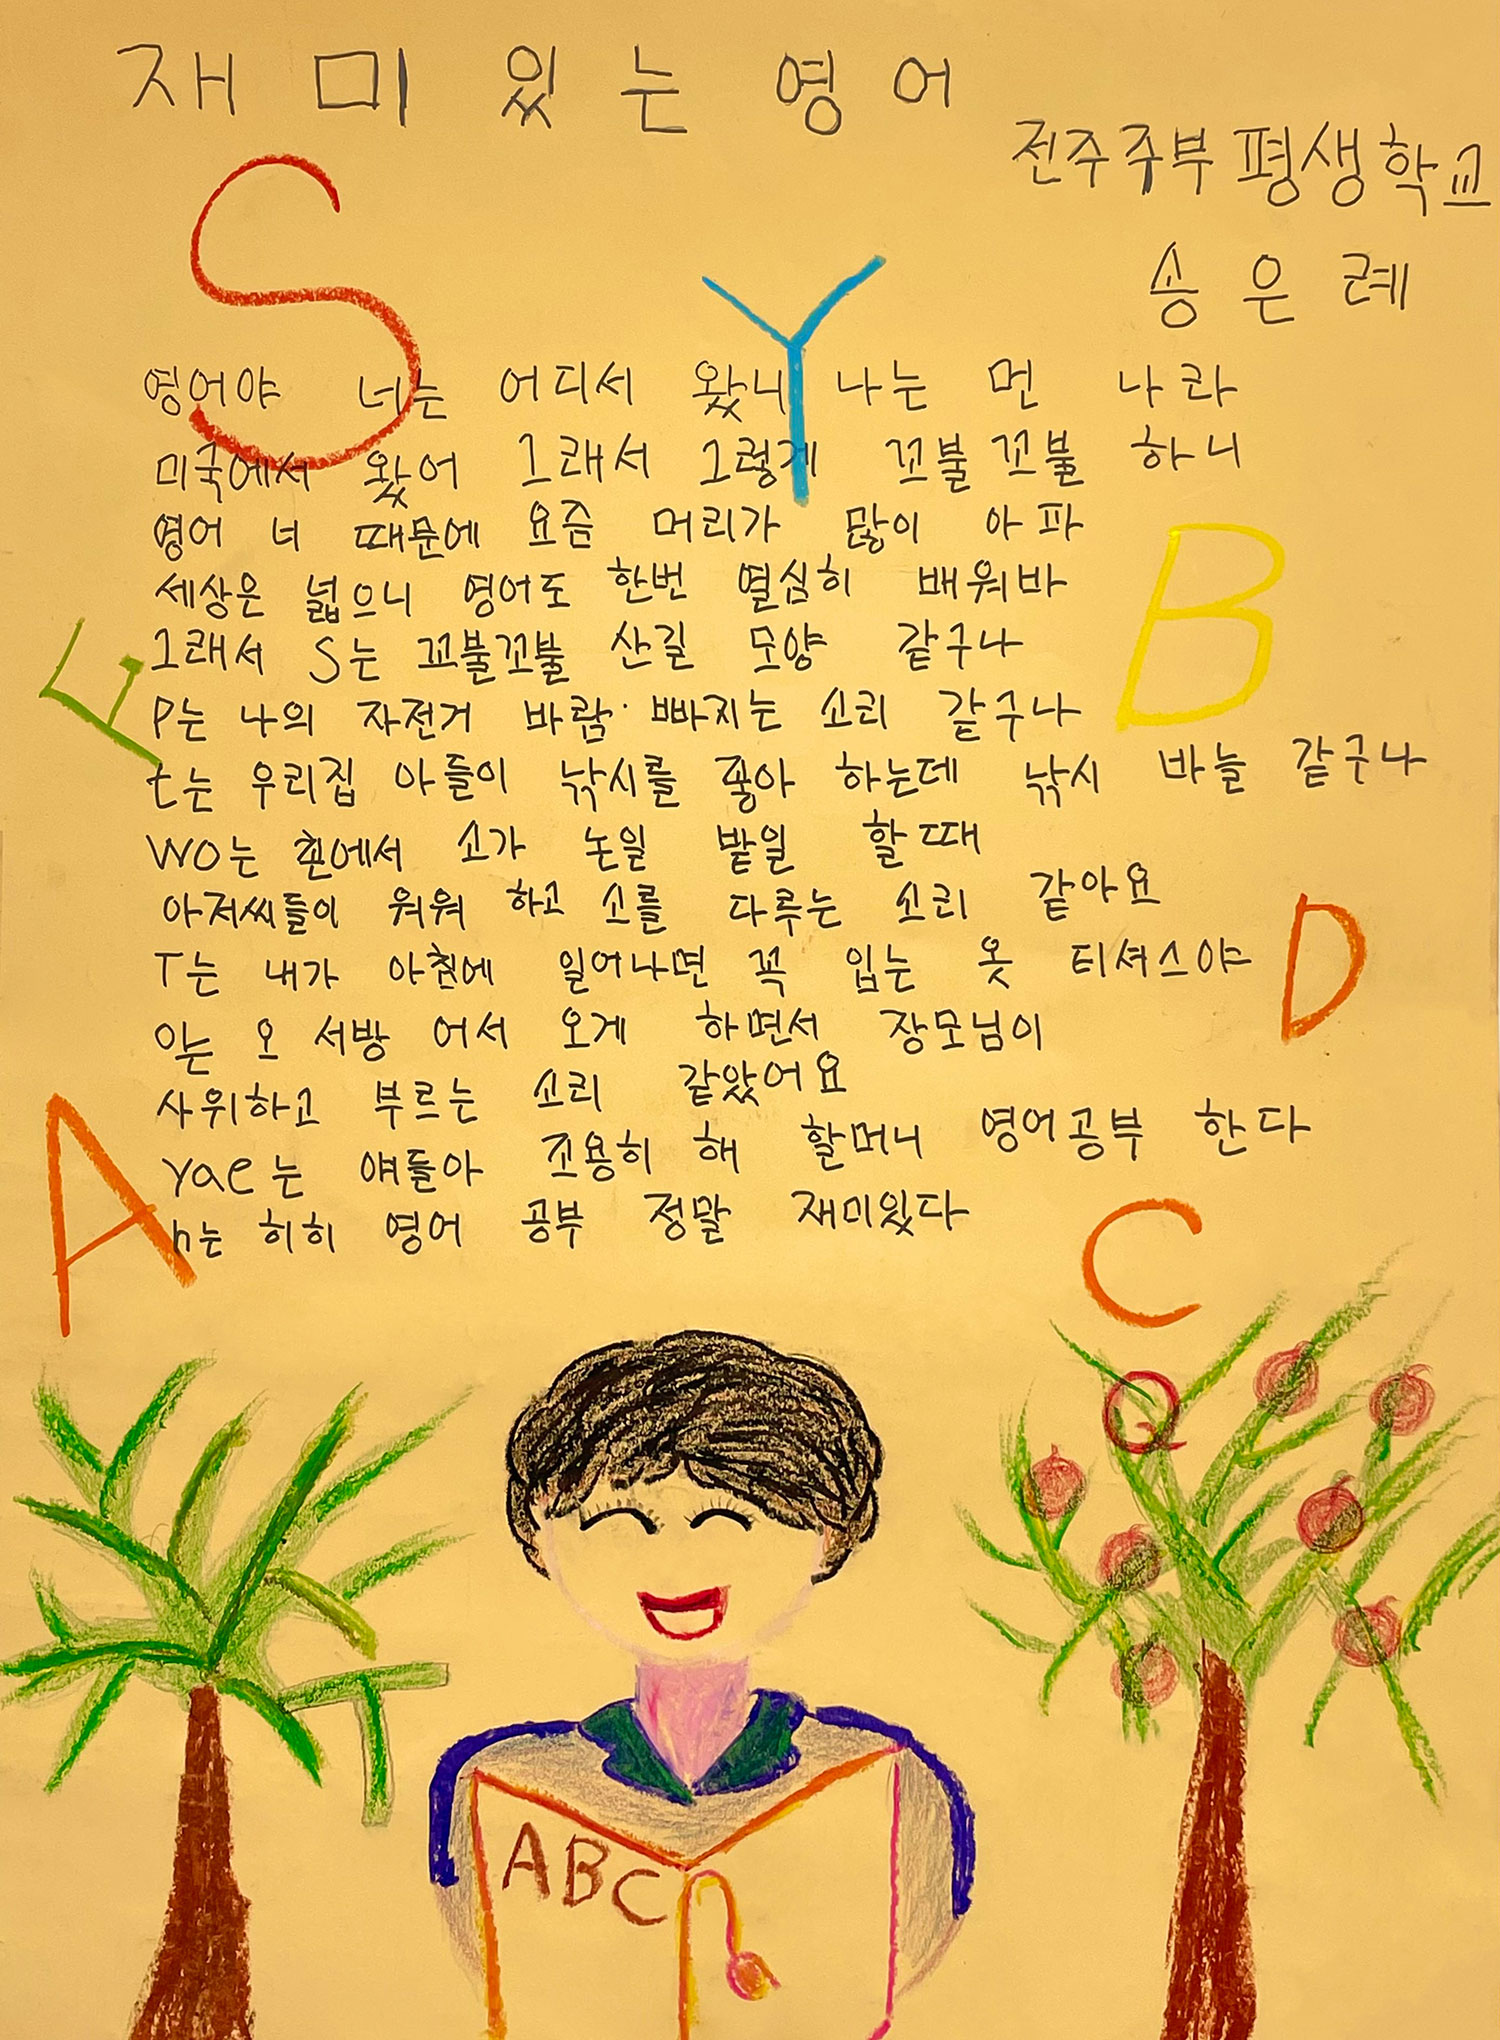 재미있는 영어
전주주부평생학교
송은례
S
Y
영어야 너는 어디서 왔니 나는 먼 나라
미국에서 왔어 그래서 그렇게 꼬불꼬불 하니
영어 너 때문에 요즘 머리가 많이 아파
B
세상은 넓으니 영어도 한번 열심히 배워바
그래서 S는 꼬불꼬불 산길 모양 같구나
F
P는 나의 자전거 바람 빠지는 소리 같구나
t는 우리집 아들이 낚시를 좋아 하는데 낚시 바늘 같구나
wo는 촌에서 소가 논일 밭일 할때
아저씨들이 워워 하고 소를 다루는 소리 같아요
D
T는 내가 아침에 일어나면 꼭 입는 옷 티셔스야
오 서방 어서 오게 하면서 장모님이
사위하고 부르는 소리 같았어요
A
yae는 얘들아 조용히 해 할머니 영어공부 한다
h는 히히 영어 공부 정말 재미있다
C
Q
T
ABC